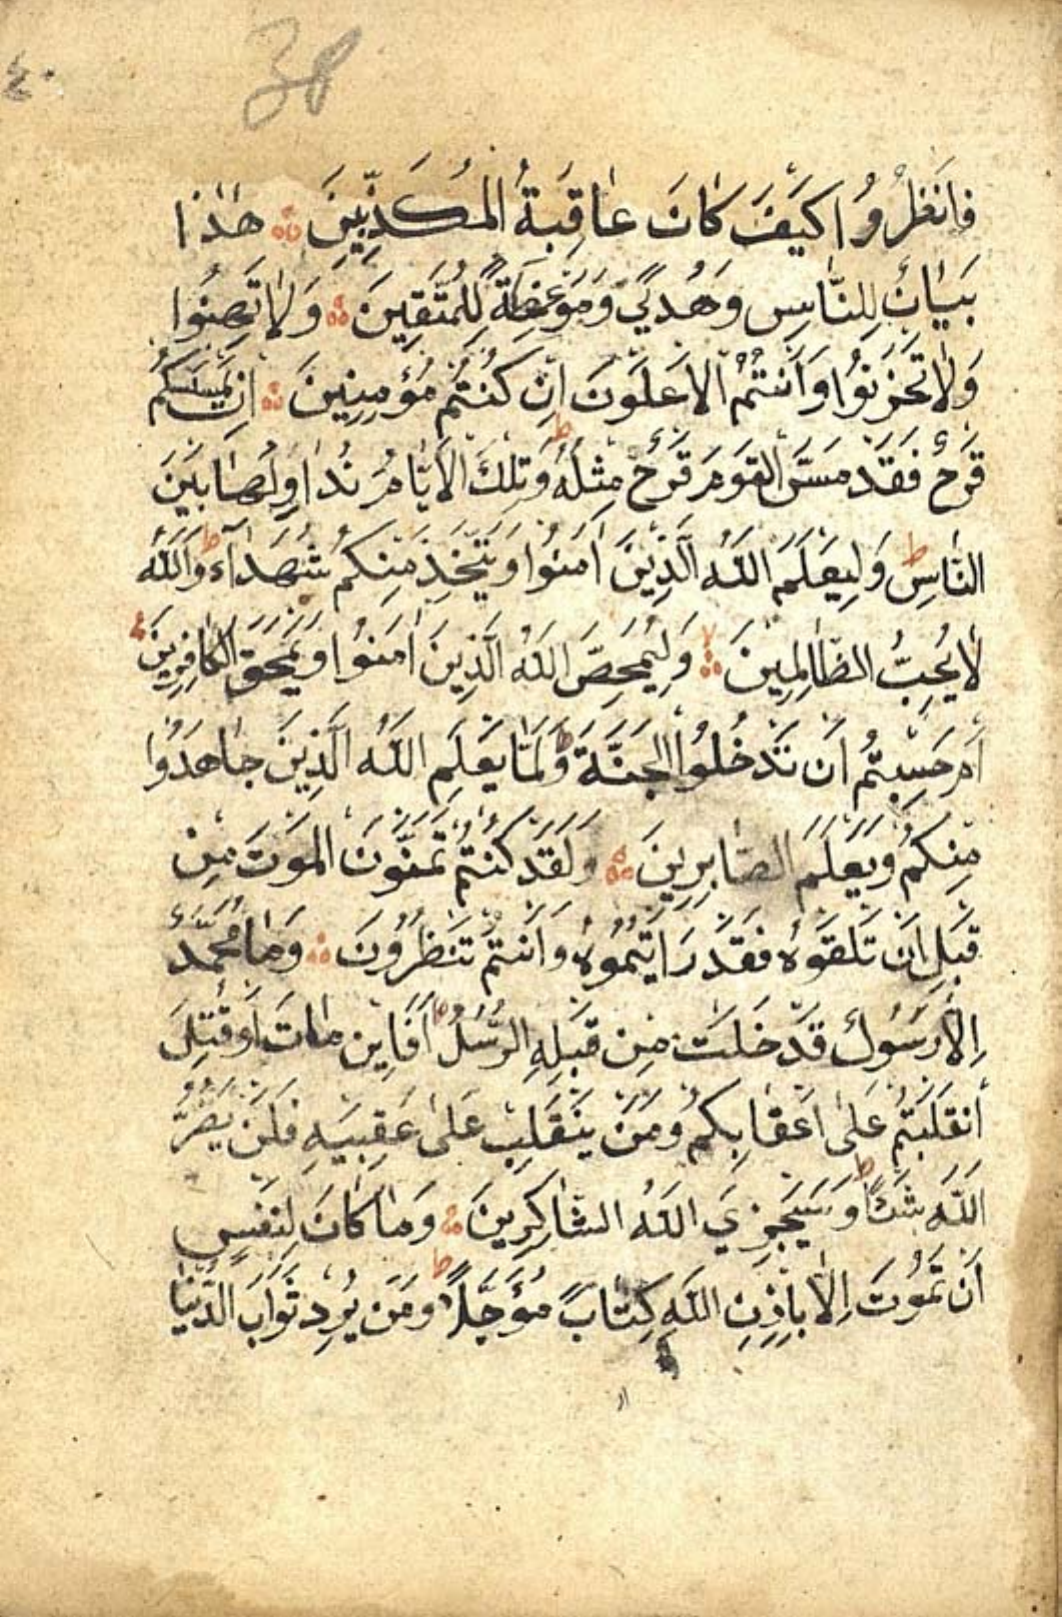 38
٤٠
فَانْظُرُوا كَيْفَ كَانَ عَاقِبَةُ الْمُكَذِّبِينَ هٰذَا
بَيَانٌ لِلنَّاسِ وَهُدًي وَمَوْعِظَةٌ لِلْمُتَّقِينَ وَلَا تَهِنُوا
وَلَا تَحْزَنُوا وَأَنْتُمُ الْأَعْلَوْنَ إِنْ كُنْتُمْ مُؤْمِنِينَ إِنْ يَمْسَسْكُمْ
قَرْحٌ فَقَدْ مَسَّ الْقَوْمَ قَرْحٌ مِثْلُهُ ط وَتِلْكَ الْأَيَّامُ نُدَاوِلُهَا بَيْنَ
النَّاسِ ط وَلِيَعْلَمَ اللَّهُ الَّذِينَ اٰمَنُوا وَيَتَّخِذَ مِنْكُمْ شُهَدَآءَ ط وَاللَّهُ
لَا يُحِبُّ الظَّالِمِينَ لا وَلِيُمَحِّصَ اللَّهُ الَّذِينَ اٰمَنُوا وَيَمْحَقَ الْكَافِرِينَ
أَمْ حَسِبْتُمْ أَنْ تَدْخُلُوا الْجَنَّةَ وَلَمَّا يَعْلَمِ اللَّهُ الَّذِينَ جَاهَدُوا
مِنْكُمْ وَيَعْلَمَ الصَّابِرِينَ وَلَقَدْ كُنْتُمْ تَمَنَّوْنَ الْمَوْتَ مِنْ
قَبْلِ أَنْ تَلْقَوْهُ فَقَدْ رَاَيْتُمُوهُ وَأَنْتُمْ تَنْظُرُونَ وَمَا مُحَمَّدٌ
إِلَّا رَسُولٌ قَدْ خَلَتْ مِنْ قَبْلِهِ الرُّسُلُ ط أَفَاِيْن مَاتَ أَوْ قُتِلَ
انْقَلَبْتُمْ عَلٰى أَعْقَابِكُمْ وَمَنْ يَنْقَلِبْ عَلٰى عَقِبَيْهِ فَلَنْ يَضُرَّ
اللَّهَ شَيْئًا ط وَسَيَجْزِي اللَّهُ الشَّاكِرِينَ وَمَا كَانَ لِنَفْسٍ
أَنْ تَمُوتَ إِلَّا بِإِذْنِ اللَّهِ كِتَابًا مُؤَجَّلًا ط وَمَنْ يُرِدْ ثَوَابَ الدُّنْيَا